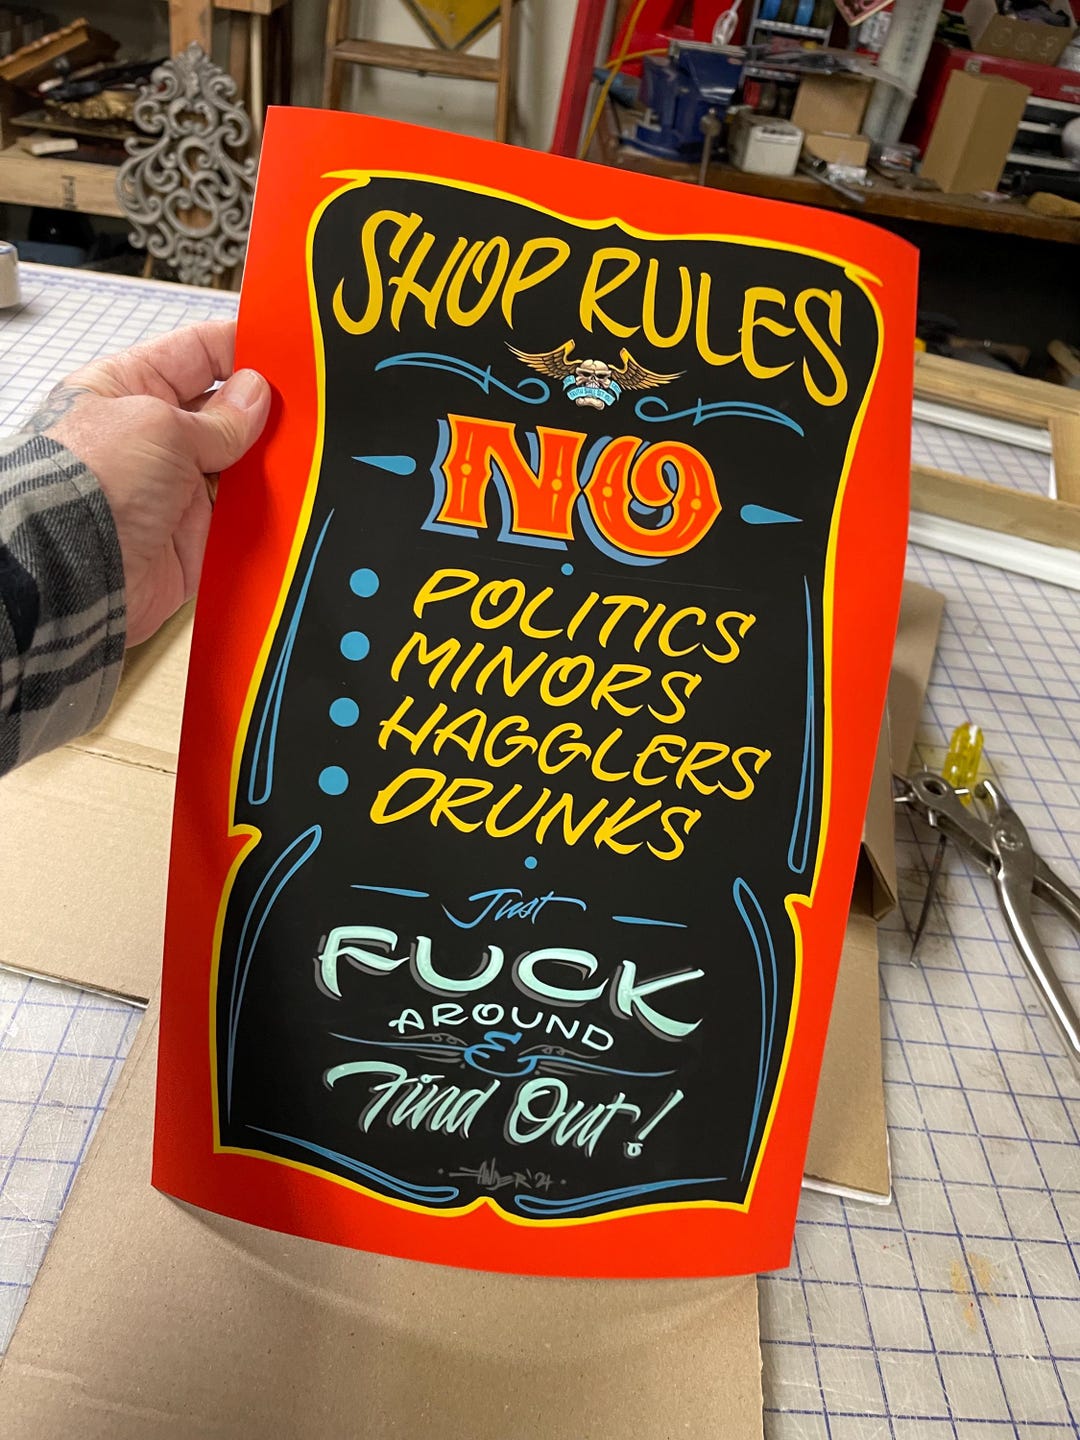 SHOP RULES
NO
POLITICS
MINORS
HAGGLERS
DRUNKS
Just
FUCK
AROUND
&
Find Out!